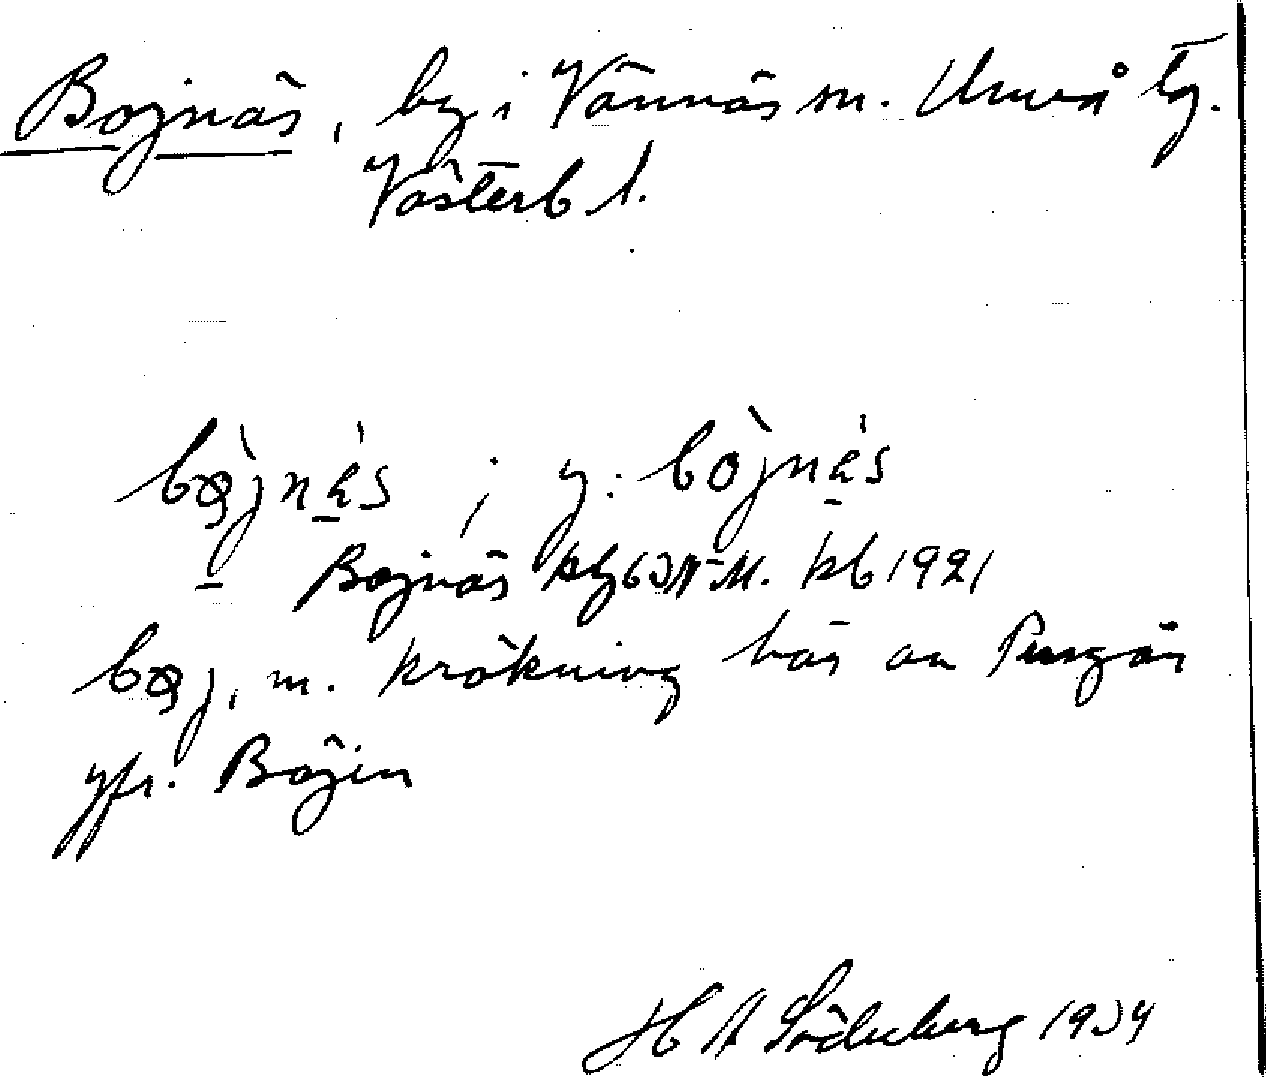 Bojnäs, by i Vännäs sn. Umeå tg.
Västerb l.
bǫ̀jnäs ; y. bòjnäs
Bojnäs kb 1921
bǫj, m. krökning här av Pengån
jfr. Böjen
H A Söderberg 1934